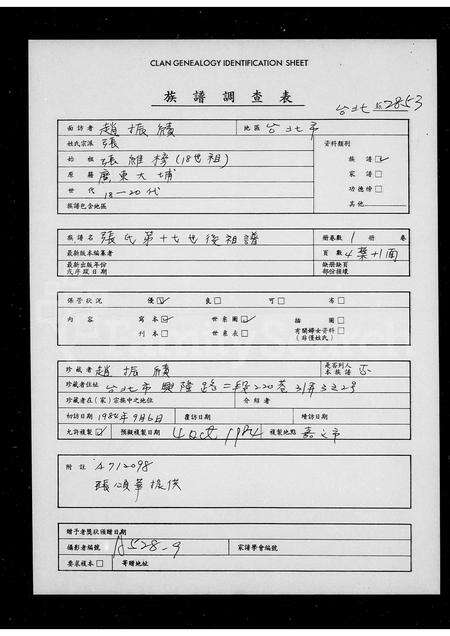 CLAN GENEALOGY IDENTIFICATION SHEET
族譜調查表
台北 2853
面訪者 趙振績 地區 台北市
姓氏宗派 張 資料類別
始祖 張維檸(18世祖) 族譜☑
原籍 廣東大埔 家譜□
世代 18—20代 功德榜□
族譜包含地區 其他
族譜名 張氏第十七世後祖譜 冊卷數 1 冊 卷
最新版本編纂者 頁數 4葉+1面
最新出版年份或序跋日期 缺冊缺頁部份接續
保管狀況 優☑ 良□ 可□ 劣□
內容 寫本☑ 世系圖☑ 插圖□
刊本□ 世系表□ 有關婦女資料□(非僅姓氏)
珍藏者 趙振績 是否列入本族譜 否
珍藏者住址 台北市興隆路二段220巷31弄3之2号
珍藏者在(家)宗族中之地位 介紹者
初訪日期 1984年9月6日 覆訪日期 續訪日期
允許複製☑ 預擬複製日期 4 Oct 1984 複製地點 嘉之市
附註 A712098
張頌華提供
贈予者獎狀頒贈日期
攝影者編號 A528-9 家譜學會編號
要求複本□ 寄贈地址